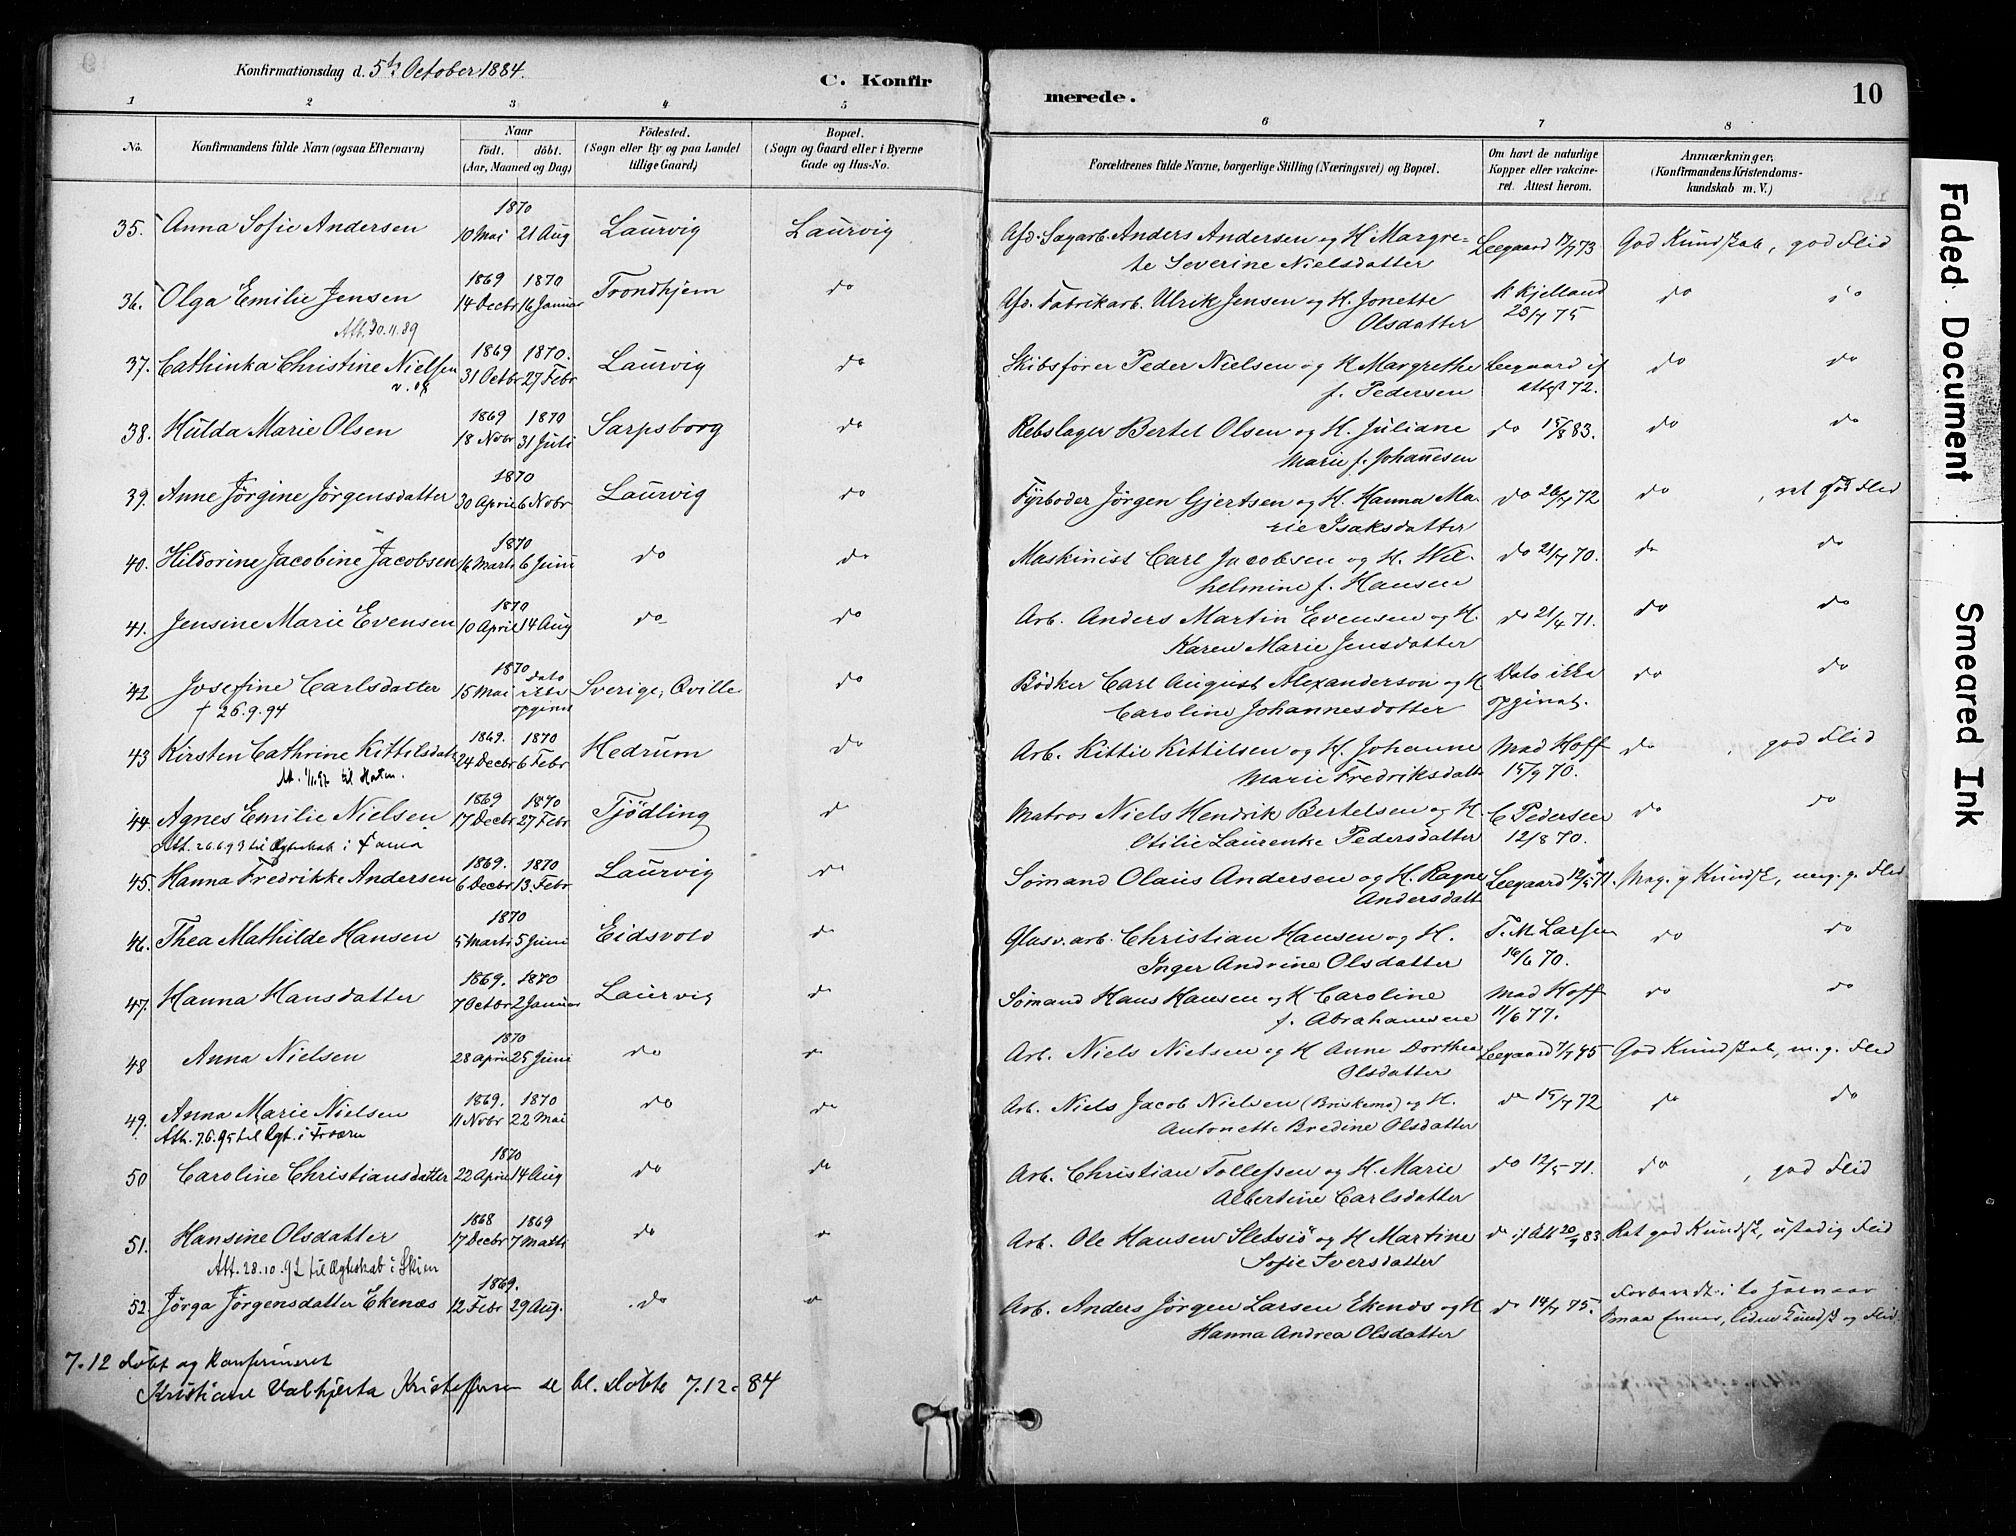 Konfirmationsdag d. 5te October 1884.
C. Konfir
merede.
10
1 2 3 4 5 6 7 8
No.
Konfirmandens fulde Navn (ogsaa Efternavn)
Naar
födt. döbt.
(Aar, Maaned og Dag)
Födested.
(Sogn eller By og paa Landet
tillige Gaard)
Bopæl.
(Sogn og Gaard eller i Byerne
Gade og Hus-No.
Forældrenes fulde Navne, borgerlige Stilling (Næringsvei) og Bopæl.
Om havt de naturlige
Kopper eller vakcine-
ret. Attest herom.
Anmærkninger.
(Konfirmandens Kristendoms-
kundskab m. V.)
1870
35. Anna Sofie Andersen 10 Mai 21 Aug Laurvig Laurvig Afd. Sagarb. Anders Andersen og H Margre- Leegaard 17/7 73 God Kundskab, god Flid
te Severine Nielsdatter
1869 1870
36. Olga Emilie Jensen 14 Decbr 16 Januar Trondhjem do Afd. Fabrikarb. Ulrik Jensen og H. Jonette K Kjelland do do
Olsdatter 23/7 75
Att. 30.11.89
1869 1870.
37. Cathinka Christine Nielsen 31 Octbr 27 Febr Laurvig do Skibsfører Peder Nielsen og H Margrethe Leegaard if do do
f. Pedersen attest 72.
1869 1870
38. Hulda Marie Olsen 18 Nobr 31 Juli Sarpsborg do Rebslager Bertel Olsen og H. Juliane do 15/8 83. do do
Marie f. Johannesen
1870
39. Anne Jörgine Jörgensdatter 30 April 6 Nobr Laurvig do Fyrböder Jörgen Gjertsen og H. Hanna Ma- do 26/7 72 do , ret god Flid
rie Isaksdatter
1870
40. Hildorine Jacobine Jacobsen 16 Marts 6 Juni do do Maskinist Carl Jacobsen og H. Wil- do 21/7 70. do do
helmine f. Hansen
1870
41. Jensine Marie Evensen 10 April 14 Aug do do Arb. Anders Martin Evensen og H. do 21/4 71. do do
Karen Marie Jensdatter
1870 dato
42 Josefine Carlsdatter 15 Mai ikke Sverige, Qville do Bödker Carl August Alexanderson og H Dato ikke do do
† 26.9.94 opgivet Caroline Johannesdatter opgivet.
1869. 1870
43 Kirsten Cathrine Kittilsdatt 24 Decbr 6 Febr Hedrum do Arb. Kittil Kittilsen og H. Johanne Mad Hoff do , god Flid
til Horten. Marie Fredriksdatt 15/9 70.
1869 1870
44. Agnes Emilie Nielsen 17 Decbr 27 Febr Tjödling do Matros Niels Hendrik Bertelsen og H. C Pedersen do do
Att. 26.6.93 til Ægteskab i Otilie Laurenke Pedersdatter 12/8 70.
1869. 1870
45. Hanna Fredrikke Andersen 6 Decbr 13. Febr Laurvig do Sömand Olaus Andersen og H. Ragne Leegaard 12/5 71. Meg. g Kundsk, meg. g. Flid
Andersdatt
1870
46. Thea Mathilde Hansen 5 Marts 5 Juni Eidsvold do Glasv. arb. Christian Hansen og H. T. M. Larsen do do
Inger Andrine Olsdatter 16/6 70.
1869. 1870
47. Hanna Hansdatter 7 Octbr 2 Januar Laurvig do Sömand Hans Hansen og H Caroline Mad Hoff do do
f. Abrahamsen 11/6 77.
1870
48 Anna Nielsen 28 April 25 Juni do do Arb. Niels Nielsen og H Anne Dorthea Leegaard God Kundskab, m. g. Flid
Olsdatter
1869. 1870
49. Anna Marie Nielsen 11 Nobr 22 Mai do do Arb. Niels Jacob Nielsen og H. do 15/7 72 do do
Att. 7.6.95 til Ægt. i Antonette Bredine Olsdatter
1870
50 Caroline Christiansdatter 22 April 14 Aug do do Arb. Christian Tollefsen og H. Marie do 12/5 71. do , god Flid
Albertine Carlsdatter
1868 1869
51. Hansine Olsdatter 17 Decbr 7 Marts do do Arb. Ole Hansen Sletsiö og H Martine do if Att 20/9 83 Ret god Kundsk, ustadig Flid
Att. 28.10.92 til Ægteskab i Skien Sofie Iversdatter
1869.
52. Jörga Jörgensdatter Ekenæs 12 Febr 29 Aug. do do Arb. Anders Jörgen Larsen Ekenæs og H do 14/7 75. Forberedt i to
Hanna Andrea Olsdatter smaa Evner, liden Kundsk og Flid
7.12 döbt og konfirmeret
Kristiane Valhjerta Kristoffersen se bl. döbte 7.12.84
Faded Document
Smeared Ink